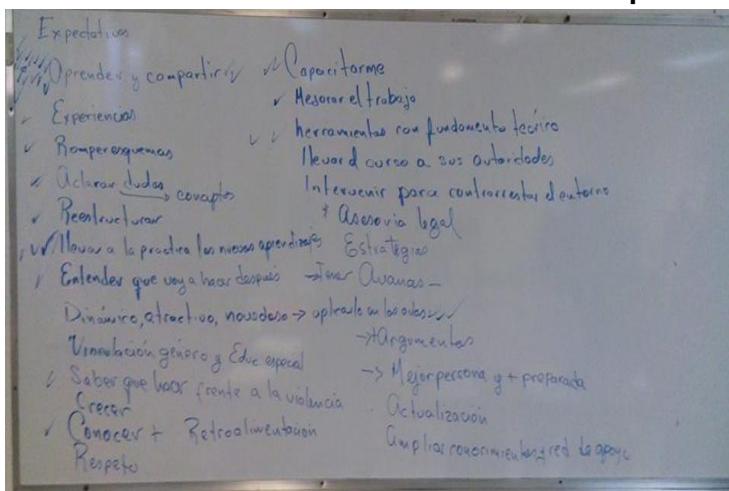 Expectativas
Aprender y compartir
Experiencias
Romper esquemas
Aclarar dudas → conceptos
Reestructurar
llevar a la practica los nuevos aprendizajes
Entender que voy a hacer después
Dinámico, atractivo, novedoso → aplicarlo en las aulas
Vinculación género y Educ especal
Saber que hacer frente a la violencia
Crecer
Conocer + Retroalimentación
Respeto
Capacitarme
Mejorar el trabajo
herramientas con fundamento teórico
llevar el curso a sus autoridades
Intervenir para contrarrestar el entorno
* Asesoria legal
Estrategias
→ Tener
→ Argumentos
→ Mejor persona y + preparada
Actualización
Ampliar conocimientos y red de apoyo